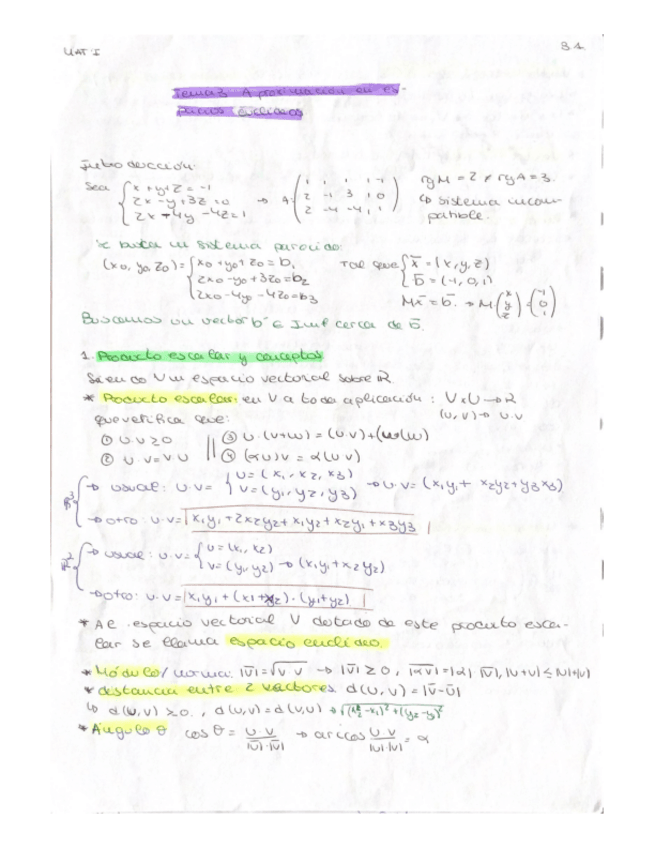 MAT I 3.1
Tema 3 Aproximación en es-
pacios euclídeos
Introducción:
Sea { x+y+z=-1 2x-y+3z=0 2x-4y-4z=1 → A: ( 1 1 1 | -1 2 -1 3 | 0 2 -4 -4 | 1 ) rgM = 2 ≠ rgA = 3. ↳ sistema incom-patible.
Se busca un sistema parecido:
(x0, y0, z0) = { x0+y0+z0=b1 2x0-y0+3z0=b2 2x0-4y0-4z0=b3 Tal que { x̄=(x,y,z) b̄=(-1,0,1)
Mx̄=b̄ → M·(x y z)=(-1 0 1)
Buscamos un vector b' ∈ Imf cerca de b̄.
1. Producto escalar y conceptos
Siendo V un espacio vectorial sobre R
* Producto escalar: en V a toda aplicación: VxV→R
(u,v)→ u·v
que verifica que:
① u·u≥0 || ③ u·(v+w) = (u·v)+(u·w)
② u·v=v·u ④ (αu)v = α(u·v)
R³ { → usual: u·v= { u=(x1, x2, x3) v=(y1, y2, y3) → u·v=(x1y1+ x2y2+y3x3)
→ otro: u·v= x1y1+2x2y2+x1y2+x2y1+x3y3
R² { → usual: u·v= { u=(x1, x2) v=(y1, y2) → (x1y1+x2y2)
→ otro: u·v= x1y1+(x1+x2)·(y1+y2)
* Al espacio vectorial V dotado de este producto esca-
lar se llama espacio euclídeo.
* Módulo/norma: |v̄|=√v·v → |v̄|≥0, |αv̄|=|α| |v̄|, |u+v|≤|u|+|v|
* distancia entre 2 vectores: d(u,v)=|v̄-ū|
↳ d(u,v)≥0, d(u,v)=d(v,u) → √(x2-x1)²+(y2-y)²
* Ángulo θ cos θ = u·v/|ū|·|v̄| → arc cos u·v/|u|·|v| = α